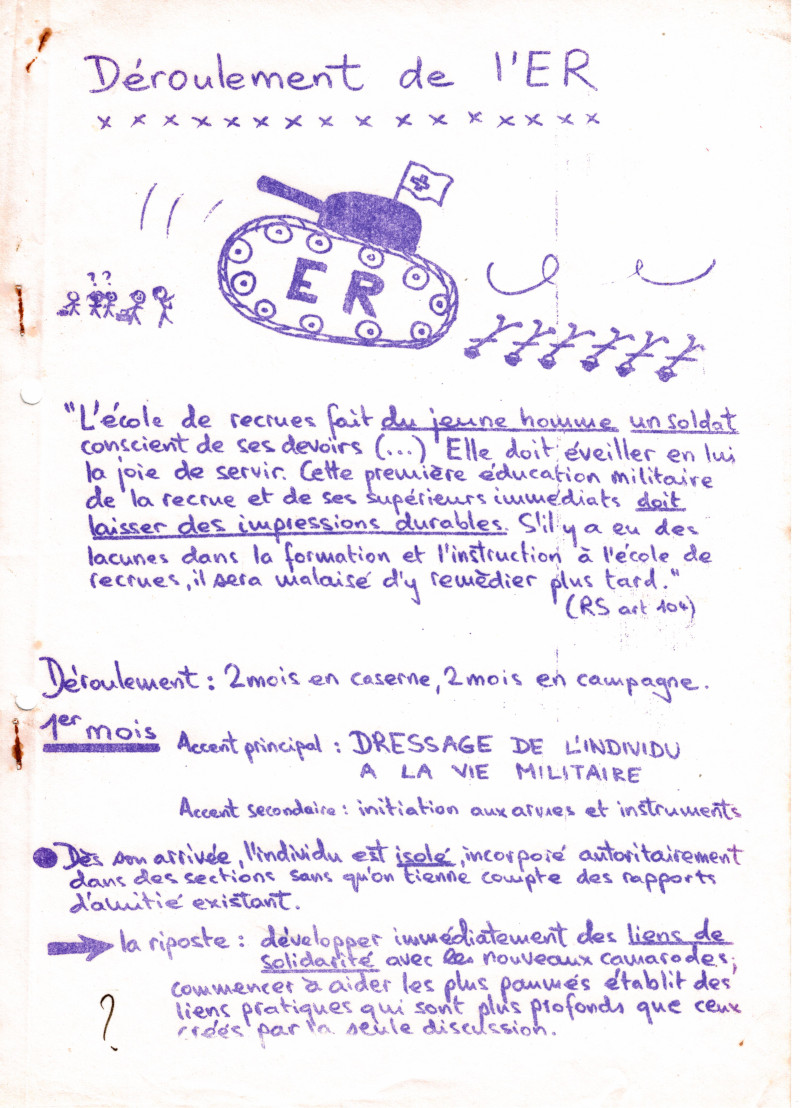 Déroulement de l'ER
x x x x x x x x x x x x x x x x
? ?
ER
"L'école de recrues fait du jeune homme un soldat
conscient de ses devoirs (...) Elle doit éveiller en lui
la joie de servir. Cette première éducation militaire
de la recrue et de ses supérieurs immédiats doit
laisser des impressions durables. S'il y a eu des
lacunes dans la formation et l'instruction à l'école de
recrues, il sera malaisé d'y remèdier plus tard."
(RS art 104)
Déroulement : 2 mois en caserne, 2 mois en campagne.
1er mois
Accent principal : DRESSAGE DE L'INDIVIDU
A LA VIE MILITAIRE
Accent secondaire : initiation aux armes et instruments
Dès son arrivée, l'individu est isolé, incorporé autoritairement
dans des sections sans qu'on tienne compte des rapports
d'amitié existant.
la riposte : développer immédiatement des liens de
solidarité avec les nouveaux camarades;
commencer à aider les plus paumés établit des
liens pratiques qui sont plus profonds que ceux
créés par la seule discussion.
?